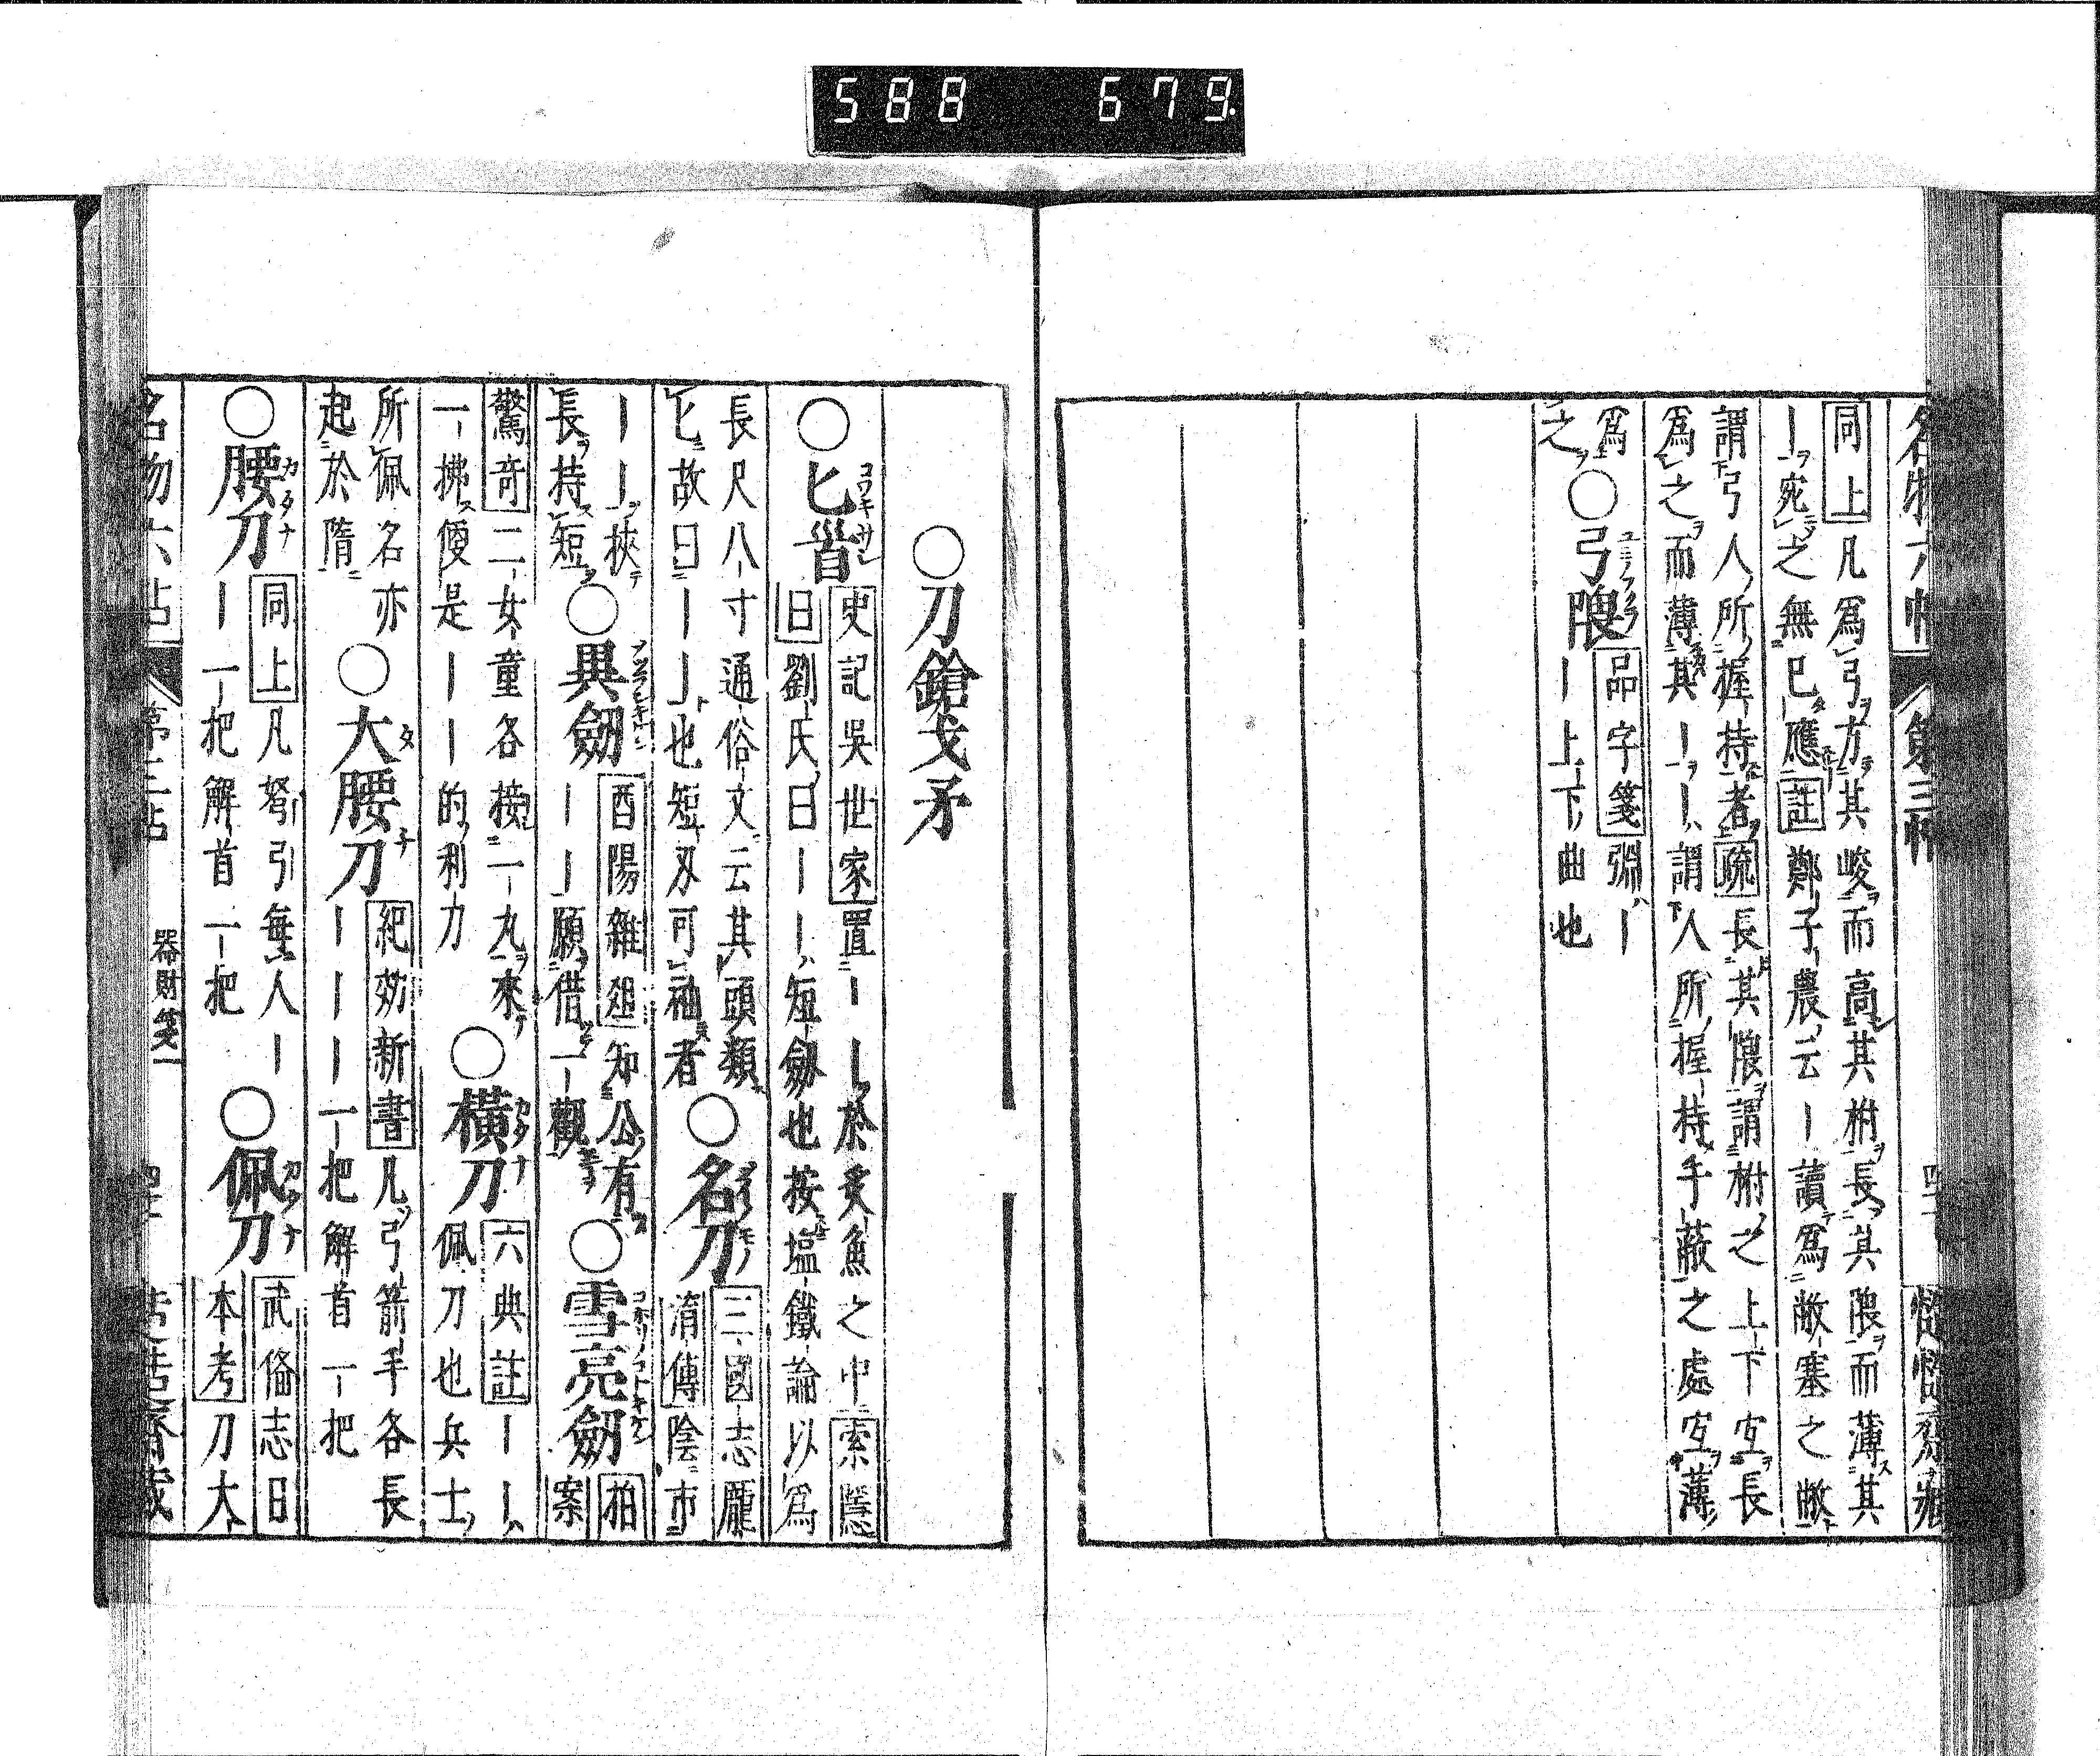 588 679
名物六帖 第三帖
同上凡爲弓方其峻而高其柎長其隈而薄其
｜宛之無已應註鄭子農云｜讀爲蔽塞之蔽
謂弓人所握持者疏長其隈謂柎之上下宜長
爲之而薄其｜｜謂人所握持手蔽之處宜薄
爲
之
○弓隈
品字箋淵｜
｜上下曲也
○刀鎗戈矛
○匕首
史記吳世家置｜｜於炙魚之中索隱
曰劉氏曰｜｜短劒也按塩鐵論以爲
長尺八寸通俗文云其頭類
匕故曰｜｜也短刄可袖者
○名刀
三國志龐
淯傳陰市
｜｜挾
長持短
○異劒
酉陽雜俎知公有
｜｜願借一觀
○雪亮劒
拍
案
驚奇二女童各接一丸來
一拂便是｜｜的利刀
○橫刀
六典註｜｜
佩刀也兵士
所佩名亦
起於隋
○大腰刀
紀効新書凡弓箭手各長
｜｜｜一把解首一把
○腰刀
同上凡弩引無人｜
｜一把解首一把
○佩刀
武俻志曰
本考刀大
名物六帖 第三帖 器財箋一